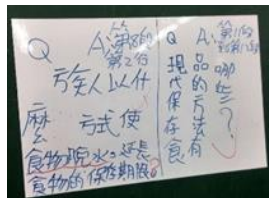 Q A:第8段
第2行
族人以什
麼方式使
食物脫水,延長
食物的保存期限?
Q A:第11段
現代保存食
品的方法有
哪些?